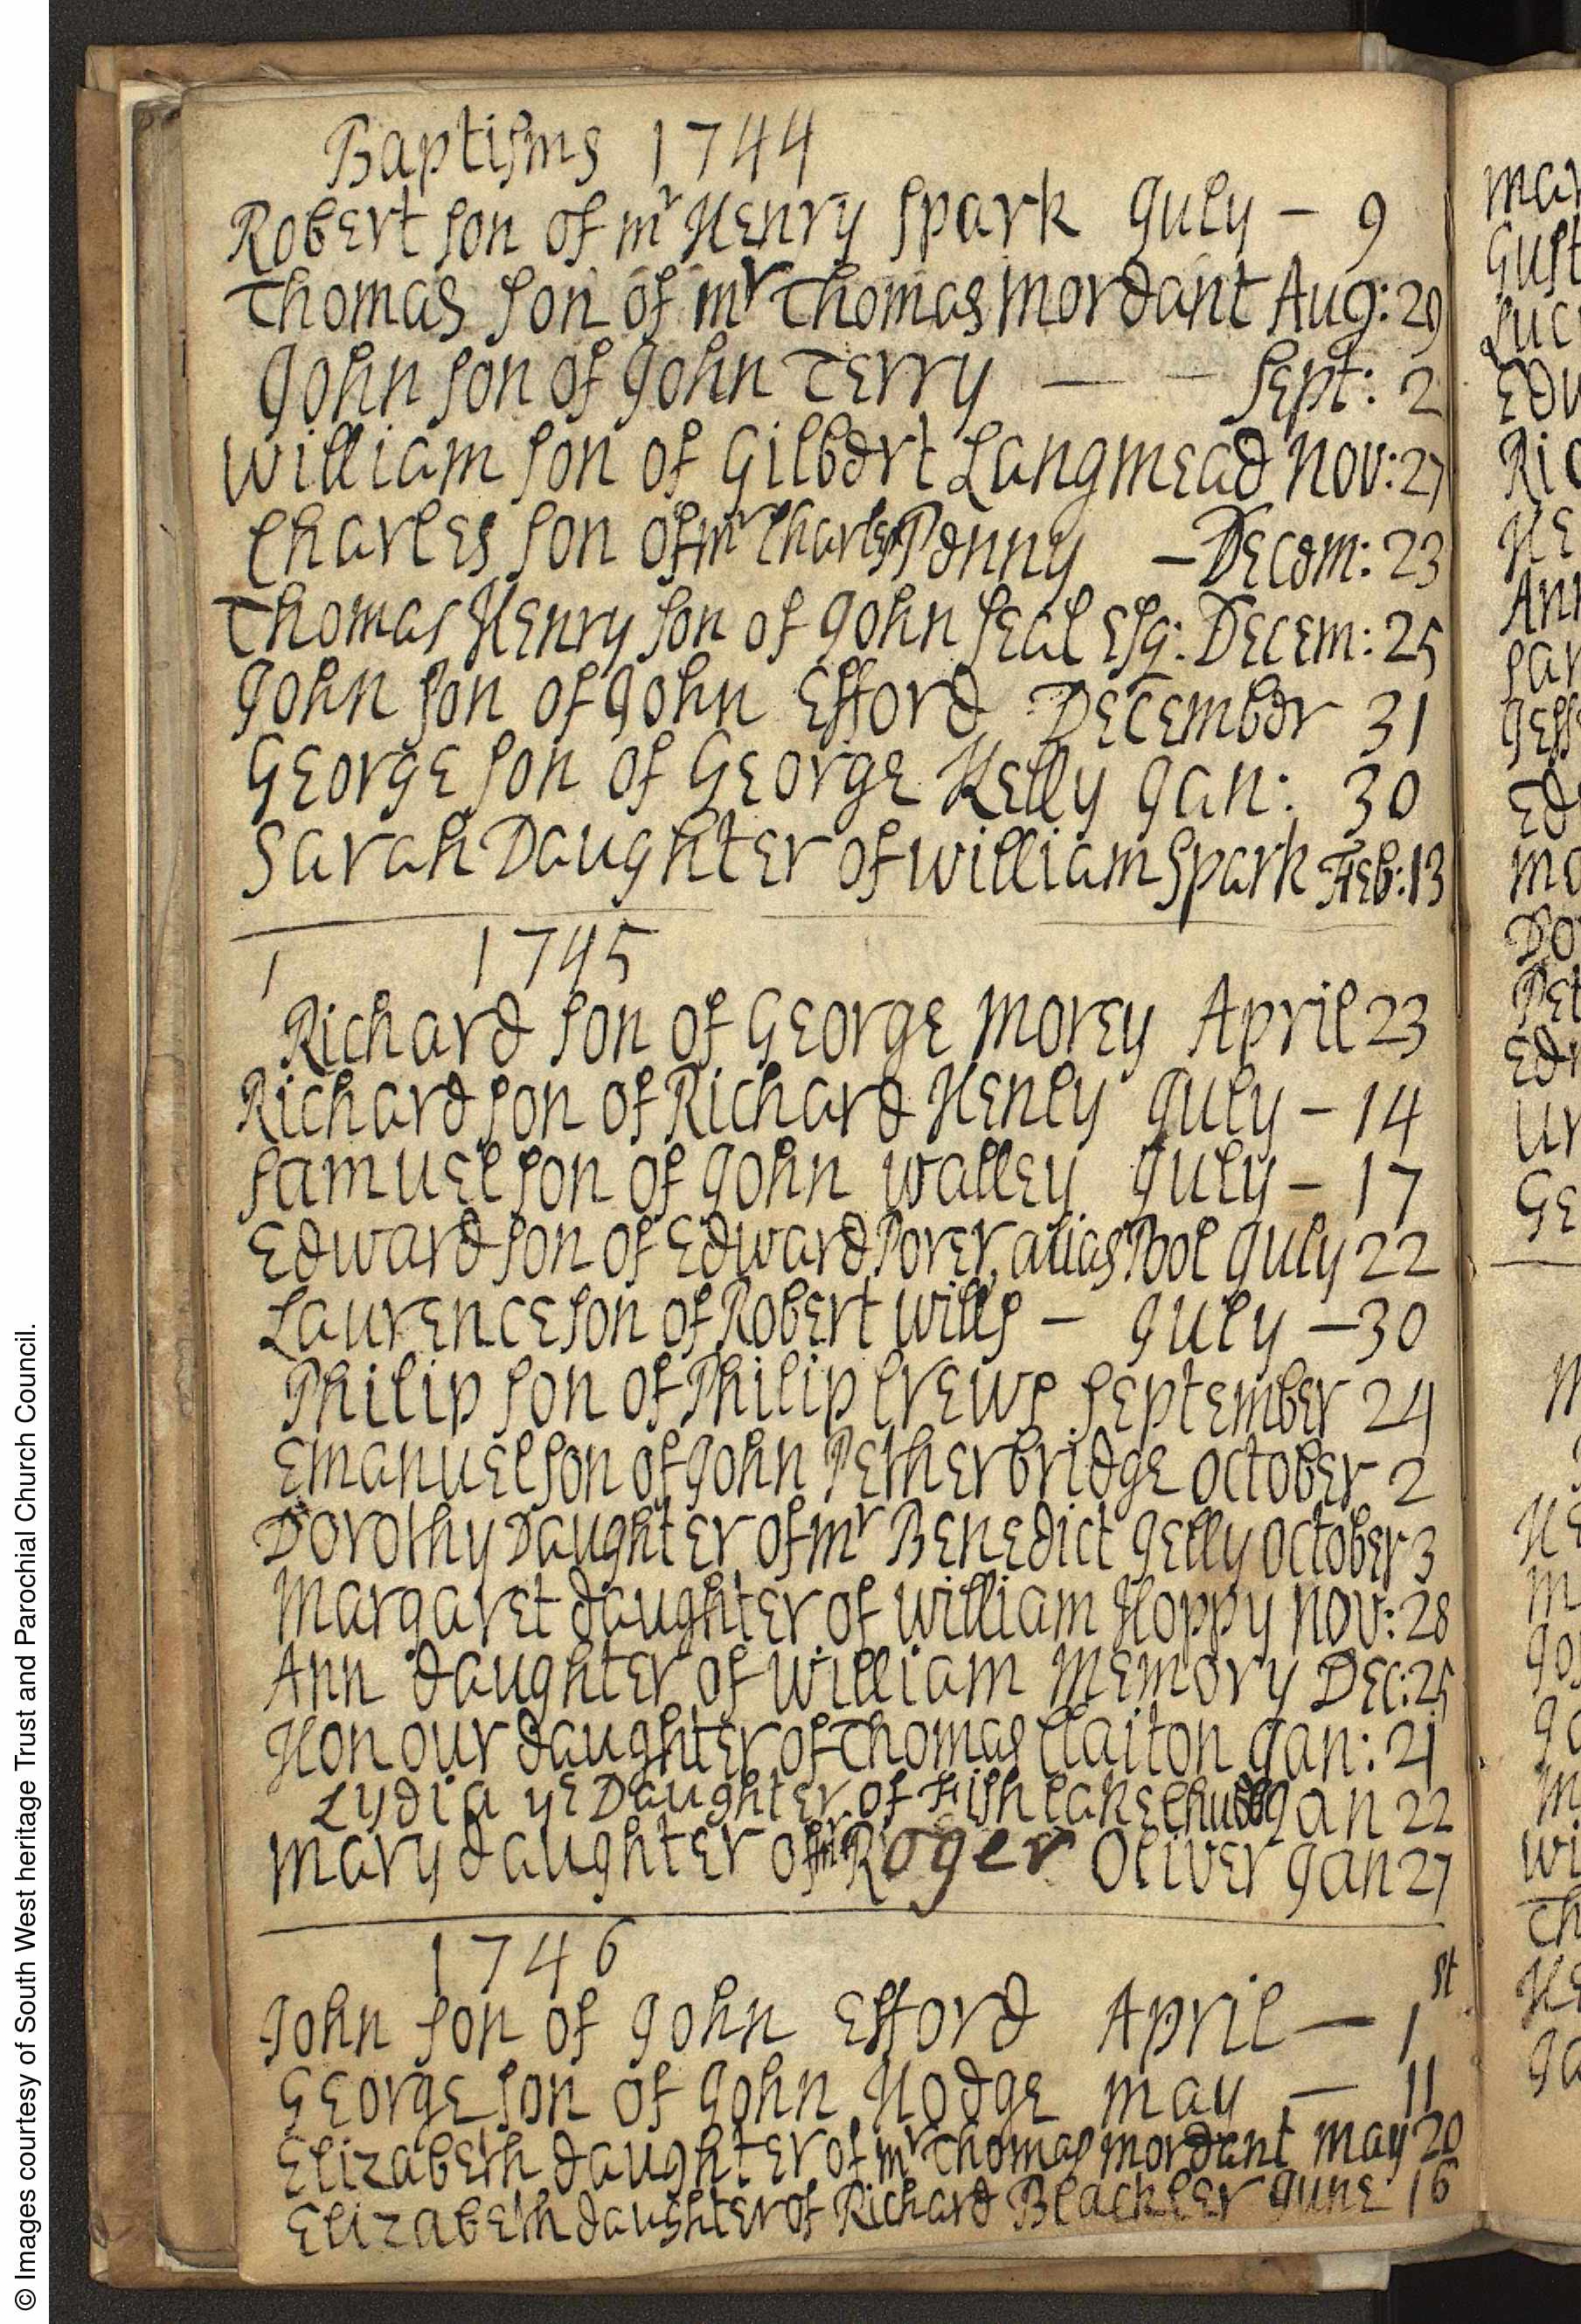 Baptisms 1744
Robert son of mr Henry Spark July - 9
Thomas son of mr Thomas Mordant Aug: 29
John son of John Terry — - Sept: 2
William son of Gilbert Langmead Nov: 27
Charles son of mr Charles Penny - Decem: 23
Thomas Henry son of John Seal Esq: Decem: 25
John son of John Efford December 31
George son of George Kelly Jan: 30
Sarah Daughter of William Spark Feb: 13
1745
Richard son of George Morey April 23
Richard son of Richard Henly July - 14
Samuel son of John Walley July - 17
Edward son of Edward Porer alias Pool July 22
Laurence son of Robert Wills - July - 30
Philip son of Philip Crews September 24
Emanuel son of John Petherbridge October 2
Dorothy Daughter of mr Benedict Jelly October 3
Margaret daughter of William Hoppy Nov: 28
Ann daughter of William Memory Dec: 25
Honour daughter of Thomas Claiton Jan: 21
Lydia ye Daughter of Fishlake Chubb Jan 22
Mary daughter of mr Roger Oliver Jan 27
1746
John son of John Efford April — 1st
George son of John Hodge May — 11
Elizabeth daughter of mr Thomas Mordant May 20
Elizabeth daughter of Richard Blackler June 16
© Images courtesy of South West heritage Trust and Parochial Church Council.